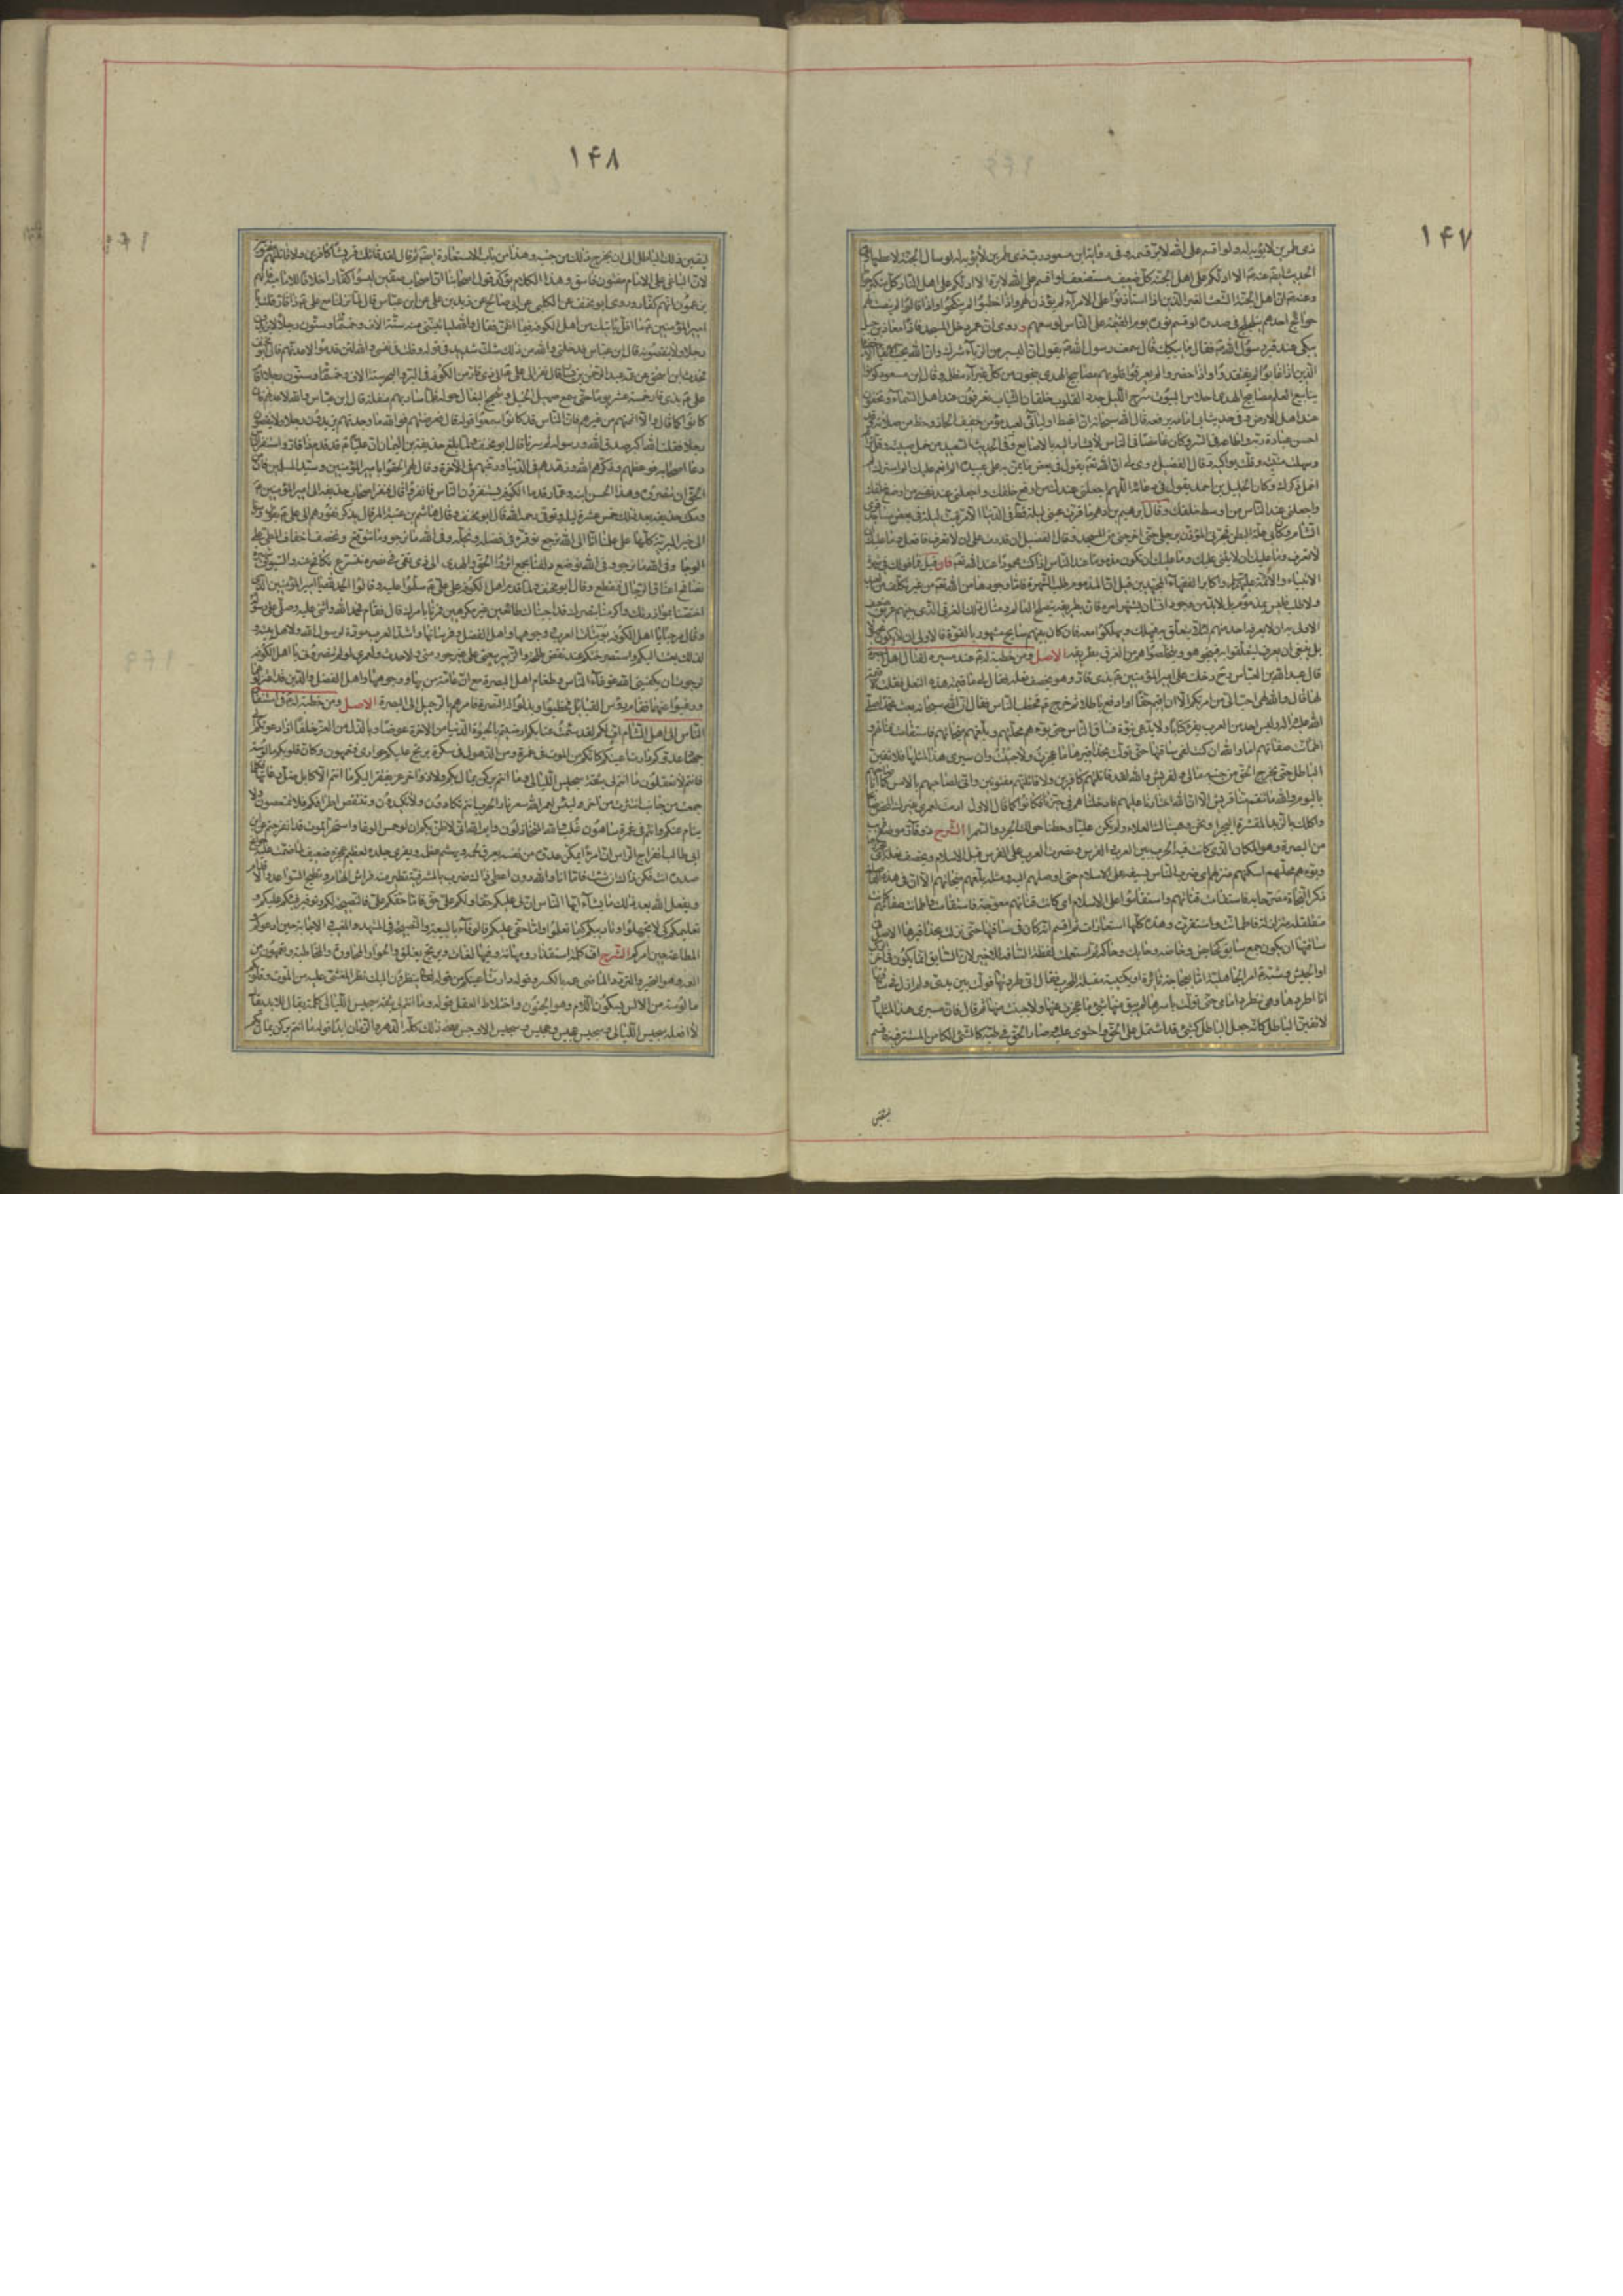 ۱۴۷
ذى طمرين لا يؤبه له ولو اقسم على الله لابر قسمه وفى رواية ابن مسعود رب ذى طمرين لا يؤبه له لو سال الجنة لاعطيها
الحديث ايضا عنه الا ادلكم على اهل الجنة كل ضعيف مستضعف لو اقسم على الله لابره الا ادلكم على اهل النار كل متكبر
وعنه ان اهل الجنة الشعث الغبر الذين اذا استاذنوا على الامراء لم يؤذن لهم واذا خطبوا لم ينكحوا واذا قالوا لم ينصت لهم
حوائج احدهم تتلجلج فى صدره لو قسم نوره يوم القيمة على الناس لوسعهم وروى ان عمر دخل المسجد فاذا بمعاذ بن جبل
يبكى عند قبر رسول الله فقال ما يبكيك قال سمعت رسول الله يقول ان اليسير من الرياء شرك وان الله يحب
الذين اذا غابوا لم يفتقدوا واذا حضروا لم يعرفوا قلوبهم مصابيح الهدى ينجون من كل غبراء مظلمة وقال ابن مسعود كونوا
ينابيع العلم مصابيح الهدى احلاس البيوت سرج الليل جدد القلوب خلقان الثياب تعرفون عند اهل السماء وتخفون
عند اهل الارض وفى حديث ابى امامة يرفعه قال الله سبحانه ان اغبط اوليائى لعبد مؤمن خفيف الحاذ ذو حظ من صلوة قد
احسن عبادة ربه واطاعه فى السر وكان غامضا فى الناس لا يشار اليه بالاصابع وفى الحديث السعيد من خمل صيته وقل
وسهلت منيته وقلت بواكيه وقال الفضيل روى ان الله تعالى يقول فى بعض ما يمن به على عبده الم انعم عليك الم استرك الم
اخمل ذكرك وكان الخليل بن احمد يقول فى دعائه اللهم اجعلنى عندك من ارفع خلقك واجعلنى عند نفسى من اوضع خلقك
واجعلنى عند الناس من اوسط خلقك وقال ابراهيم بن ادهم ما قرت عينى ليلة قط فى الدنيا الا مرة بت ليلة فى بعض مساجد قرى
الشام وكان بى علة البطن فجرنى المؤذن برجلى حتى اخرجنى من المسجد وقال الفضيل ان قدرت على ان لا تعرف فافعل وما عليك ان
لا تعرف وما عليك ان لا يثنى عليك وما عليك ان تكون مذموما عند الناس اذا كنت محمودا عند الله تعالى فان قيل فما قولك فى شهرة
الانبياء والائمة واكابر الفقهاء المجتهدين قيل ان المذموم طلب الشهرة فاما وجودها من الله تعالى من غير تكلف من العبد
ولا طلب فليس بمذموم بل لا بد من وجود انسان يشتهر امره فان بطريقه ينصلح العالم ومثال ذلك الغرقى الذى بينهم غريق ضعيف
الاولى به ان لا يعرفه احد منهم لئلا يتعلق به فيهلك ويهلكوا معه فان كان بينهم سابح مشهور بالقوة فالاولى ان لا يكون مجهولا
بل ينبغى ان يعرف ليتعلقوا به فينجو هو ويتخلصوا هم من الغرق بطريقه الاصل ومن خطبة له عند مسيره لقتال اهل البصرة
قال عبد الله بن العباس دخلت على امير المؤمنين بذى قار وهو يخصف نعله فقال لى ما قيمة هذه النعل فقلت لا قيمة
لها قال والله لهى احب الى من امركم الا ان اقيم حقا او ادفع باطلا ثم خرج فخطب الناس فقال ان الله سبحانه بعث محمدا
وليس احد من العرب يقرء كتابا ولا يدعى نبوة فساق الناس حتى بوءهم محلتهم وبلغهم منجاتهم فاستقامت قناتهم و
اطمانت صفاتهم اما والله ان كنت لفى ساقتها حتى تولت بحذافيرها ما عجزت ولا جبنت وان مسيرى هذا لمثلها فلانقبن
الباطل حتى يخرج الحق من جنبه مالى ولقريش والله لقد قاتلتهم كافرين ولاقاتلنهم مفتونين وانى لصاحبهم بالامس كما انا صاحبهم
اليوم والله ما تنقم منا قريش الا ان الله اختارنا عليهم فادخلناهم فى حيزنا فكانوا كما قال الاول ادمت لعمرى شربك المحض صابحا
واكلك بالزبد المقشرة البجرا ونحن وهبناك العلاء ولم تكن عليا وحطنا حولك الجرد والسمرا الشرح ذو قار موضع قريب
من البصرة وهو المكان الذى كانت فيه الحرب بين العرب والفرس ونصرت العرب على الفرس قبل الاسلام ويخصف نعله اى يخرزها
وبوءهم محلتهم اسكنهم منزلهم اى ضرب الناس بسيفه على الاسلام حتى اوصلهم اليه ومثله بلغهم منجاتهم الا ان فى هذه
ذكر النجاة مصرحا به فاستقامت قناتهم استقاموا على الاسلام اى كانت قناتهم معوجة فاستقامت واطمانت صفاتهم كانت
متقلقلة متزلزلة فاطمانت واستقرت وهذه كلها استعارات ثم اقسم انه كان فى ساقتها حتى تولت بحذافيرها الاصل فى
ساقتها ان يكون جمع سائق كحائض وحاضة وحائك وحاكة ثم استعملت لفظة الساقة للاخير لان السائق انما يكون فى اخر الركب
او الجيش وشبه امر الجاهلية اما بعجاجة ثائرة او بكتيبة مقبلة للحرب فقال انى طردتها فولت بين يدى ولم ازل فى ساقتها
انا اطردها وهى تطرد امامى حتى تولت باسرها ولم يبق منها شىء ما عجزت عنها ولا جبنت منها ثم قال فان مسيرى هذا لمثلها
لانقبن الباطل كانه جعل الباطل كشىء قد اشتمل على الحق واحتوى عليه وصار الحق فى طيه كالشىء الكامن المستتر فيه فاقسم
لينقبن
۱۴۸
لينقبن ذلك الباطل الى ان يخرج الحق من جنبه وهذا من باب الاستعارة ايضا ثم قال لقد قاتلت قريشا كافرين ولاقاتلنهم مفتونين
لان الباغى على الامام مفتون فاسق وهذا الكلام يؤكد قول اصحابنا ان اصحاب صفين ليسوا كفارا خلافا للامامية فانهم
يزعمون انهم كفار وروى ابو مخنف عن الكلبى عن ابى صالح عن زيد بن على عن ابن عباس قال لما نزلنا مع على ذا قار قلت يا
امير المؤمنين ما اقل من ياتيك من اهل الكوفة فيما اظن فقال والله لياتينى منهم ستة الاف وخمسمائة وستون رجلا لا يزيدون
رجلا ولا ينقصون قال ابن عباس فدخلنى والله من ذلك شك شديد فى قوله وقلت فى نفسى والله ان قدموا لاعدنهم قال ابو مخنف
فحدث ابن اسحق عن عمه عبد الرحمن بن يسار قال نفر الى على الى ذى قار من الكوفة فى البر والبحر ستة الاف وخمسمائة وستون رجلا اقام
على بذى قار خمسة عشر يوما حتى سمع صهيل الخيل وشحيج البغال حوله فلما سار بهم منقلة قال ابن عباس والله لاعدنهم فان
كانوا كما قال والا اتممتهم من غيرهم فان الناس قد كانوا سمعوا قوله قال فعرضتهم فوالله ما وجدتهم يزيدون رجلا ولا ينقصون
رجلا فقلت الله اكبر صدق الله ورسوله ثم سرنا قال ابو مخنف ولما بلغ حذيفة بن اليمان ان عليا قد قدم ذا قار واستنفر الناس
دعا اصحابه فوعظهم وذكرهم الله وزهدهم فى الدنيا ورغبهم فى الاخرة وقال لهم الحقوا بامير المؤمنين وسيد المسلمين فان
الحق ان تنصروه وهذا الحسن ابنه وعمار قد قدما الكوفة يستنفرون الناس فانفروا قال فنفر اصحاب حذيفة الى امير المؤمنين
ومكث حذيفة بعد ذلك خمس عشرة ليلة وتوفى رحمه الله قال ابو مخنف وقال هاشم بن عتبة المرقال يذكر نفورهم الى على
الى خير البرية كلها على علمنا انا الى الله نرجع نوقره فى فضله ونجله وفى الله ما نرجو وما نتوقع ونخصف اخفاف المطى على
الوجا وفى الله ما نرجى وفى الله نوضع دلفنا بجمع اثروا الحق والهدى الى ذى تقى فى نصره نتسرع نكافح عنه والسيوف شهيرة
تصافح اعناق الرجال فتقطع وقال ابو مخنف ولما قدم اهل الكوفة على على سلموا عليه وقالوا الحمد لله يا امير المؤمنين الذى
اختصنا بموازرتك واكرمنا بنصرتك قد اجبناك طائعين غير مكرهين فمرنا بامرك قال فقام فحمد الله واثنى عليه وصلى على رسوله
وقال مرحبا باهل الكوفة بيوتات العرب ووجوهها واهل الفضل وفرسانها واشد العرب مودة لرسول الله ولاهل بيته و
لذلك بعثت اليكم واستصرختكم عند نقض طلحة والزبير بيعتى عن غير جور منى ولا حدث ولعمرى لو لم تنصرونى يا اهل الكوفة
لرجوت ان يكفينى الله غوغاء الناس وطغام اهل البصرة مع ان عامة من بها ووجوهها واهل الفضل والدين قد اعتزلوها
ورغبوا عنها فقام رؤس القبائل فخطبوا وبذلوا له النصرة فامرهم بالرحيل الى البصرة الاصل ومن خطبة له فى استنفار
الناس الى اهل الشام اف لكم لقد سئمت عتابكم ارضيتم بالحيوة الدنيا من الاخرة عوضا وبالذل من العز خلفا اذا دعوتكم
الى جهاد عدوكم دارت اعينكم كانكم من الموت فى غمرة ومن الذهول فى سكرة يرتج عليكم حوارى فتعمهون وكان قلوبكم مالوسة
فانتم لا تعقلون ما انتم لى بثقة سجيس الليالى وما انتم بركن يمال بكم ولا زوافر عز يفتقر اليكم ما انتم الا كابل ضل رعاتها فكلما
جمعت من جانب انتشرت من اخر ولبئس لعمر الله سعر نار الحرب انتم تكادون ولا تكيدون وتنتقص اطرافكم فلا تمتعضون لا
ينام عنكم وانتم فى غفلة ساهون غلب والله المتخاذلون وايم الله انى لاظن بكم ان لو حمس الوغا واستحر الموت قد انفرجتم عن ابن
ابى طالب انفراج الراس ان امرءا يمكن عدوه من نفسه يعرق لحمه ويهشم عظمه ويفرى جلده لعظيم عجزه ضعيف ما ضمت عليه جوانح
صدره انت فكن ذاك ان شئت فاما انا والله دون ان اعطى ذاك ضرب بالمشرفية تطير منه فراش الهام وتطيح السواعد والاقدام
ويفعل الله بعد ذلك ما يشاء ايها الناس ان لى عليكم حقا ولكم على حق فاما حقكم على فالنصيحة لكم وتوفير فيئكم عليكم و
تعليمكم كى لا تجهلوا وتاديبكم كيما تعلموا واما حقى عليكم فالوفاء بالبيعة والنصيحة فى المشهد والمغيب والاجابة حين ادعوكم و
الطاعة حين امركم الشرح اف كلمة استقذار ومهانة وفيها لغات ويرتج يغلق والحوار المحاورة والمخاطبة وتعمهون من
العمه وهو التحير والتردد والماضى عمه بالكسر وقوله دارت اعينكم من قوله تعالى ينظرون اليك نظر المغشى عليه من الموت وقلوبكم
مالوسة من الالس بسكون اللام وهو الجنون واختلاط العقل قوله وما انتم لى بثقة سجيس الليالى كلمة يقال للابد يقال
لا افعله سجيس الليالى وسجيس عجيس وعجيس وسجيس الاوجس معنى ذلك كله الدهر والزمان ابدا قوله ما انتم بركن يمال بكم